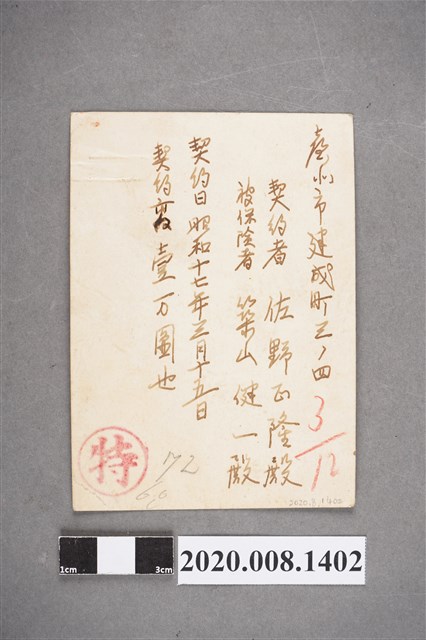 臺北市建成町三ノ四
契約者 佐野正隆殿
被保険者 築山健一殿
契約日 昭和十七年三月十五日
契約高 壹万圓也
3/12
特
72
6,6
2020.8.1402
1cm
3cm
2020.008.1402